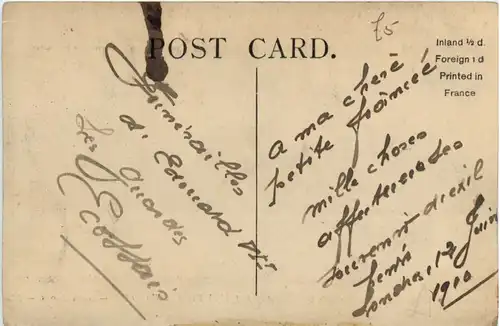 75
POST CARD.
Inland ½ d.
Foreign 1 d
Printed in
France
Funérailles
d'Edouard VII
Les gardes
Ecossais
a ma chere
petite fiancée
mille choses
affectueuses
souvenir d'exil
Londres, 17 Juin
1910